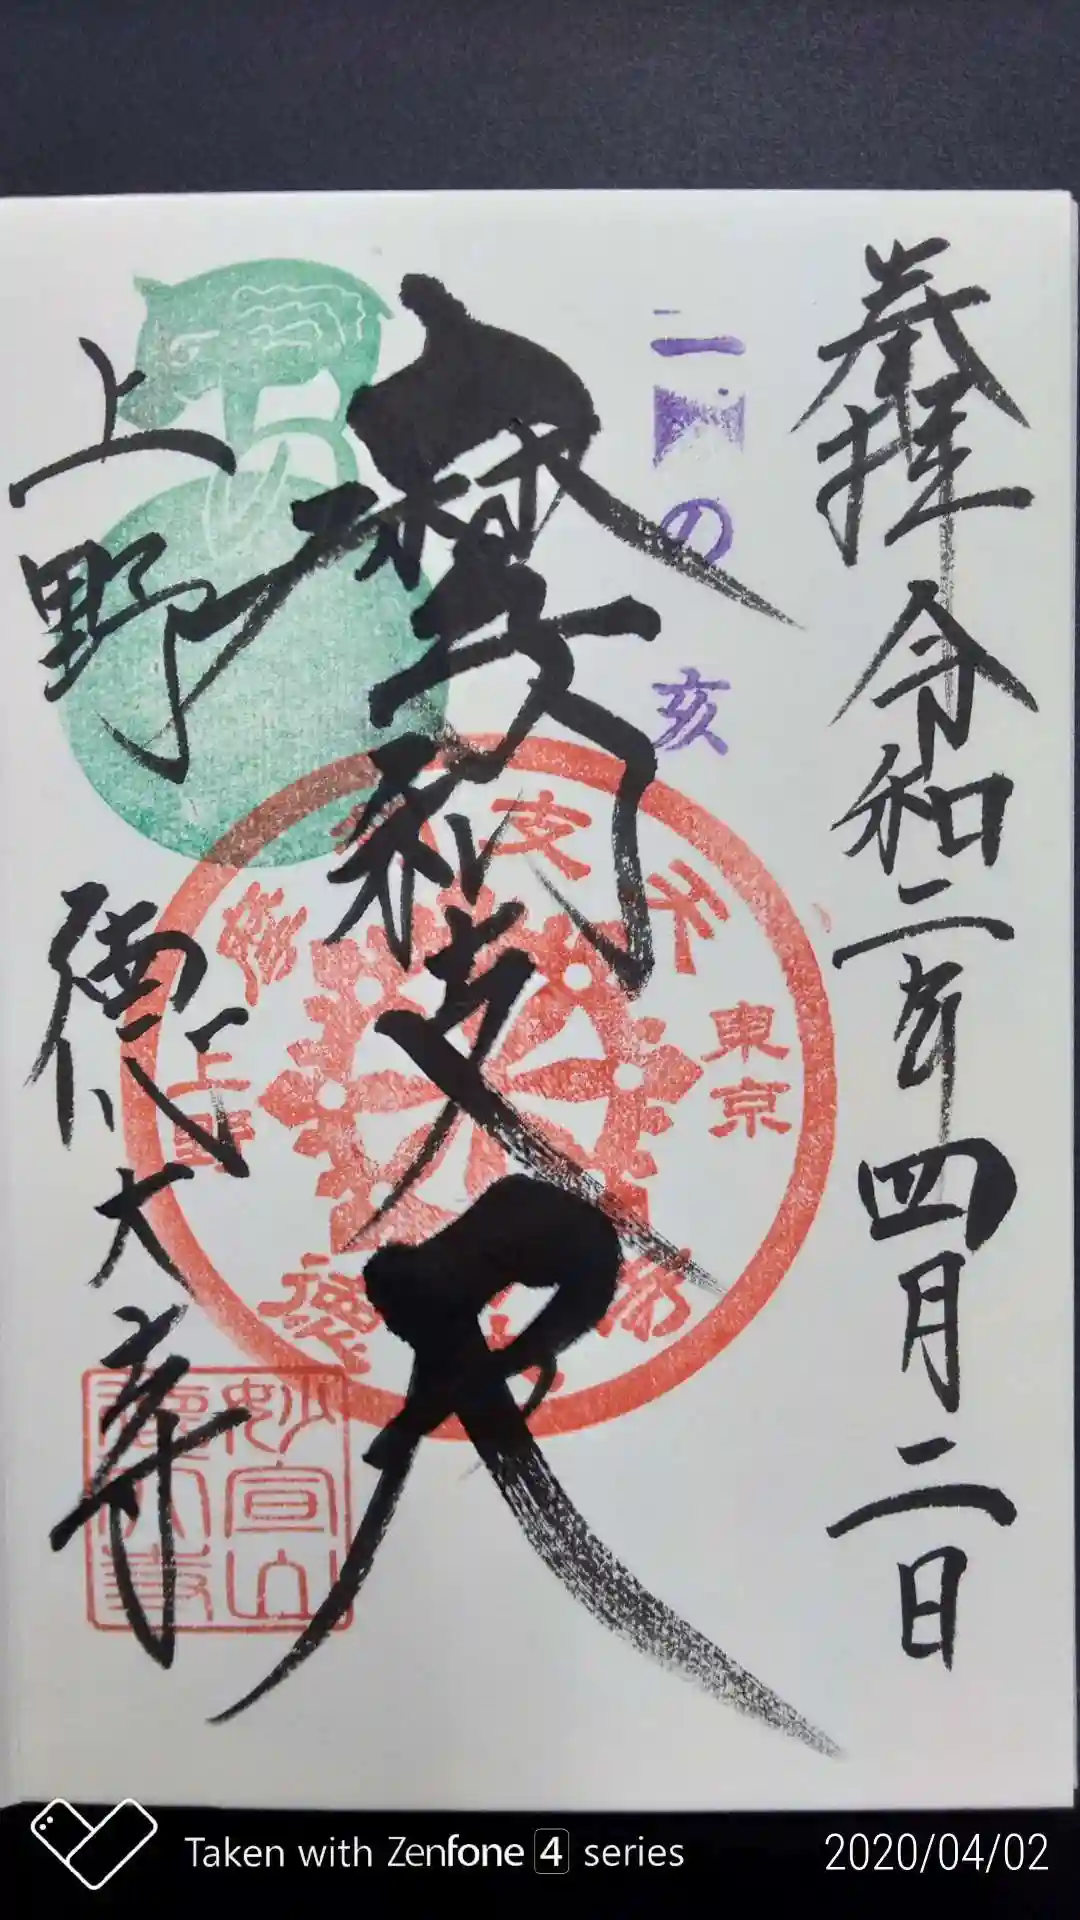 奉拝 令和二年四月二日
の亥
摩利支天
上野 徳大寺
摩利支天
東京
上野
徳大寺
妙宣山
徳大寺
Taken with Zenfone 4 series
2020/04/02